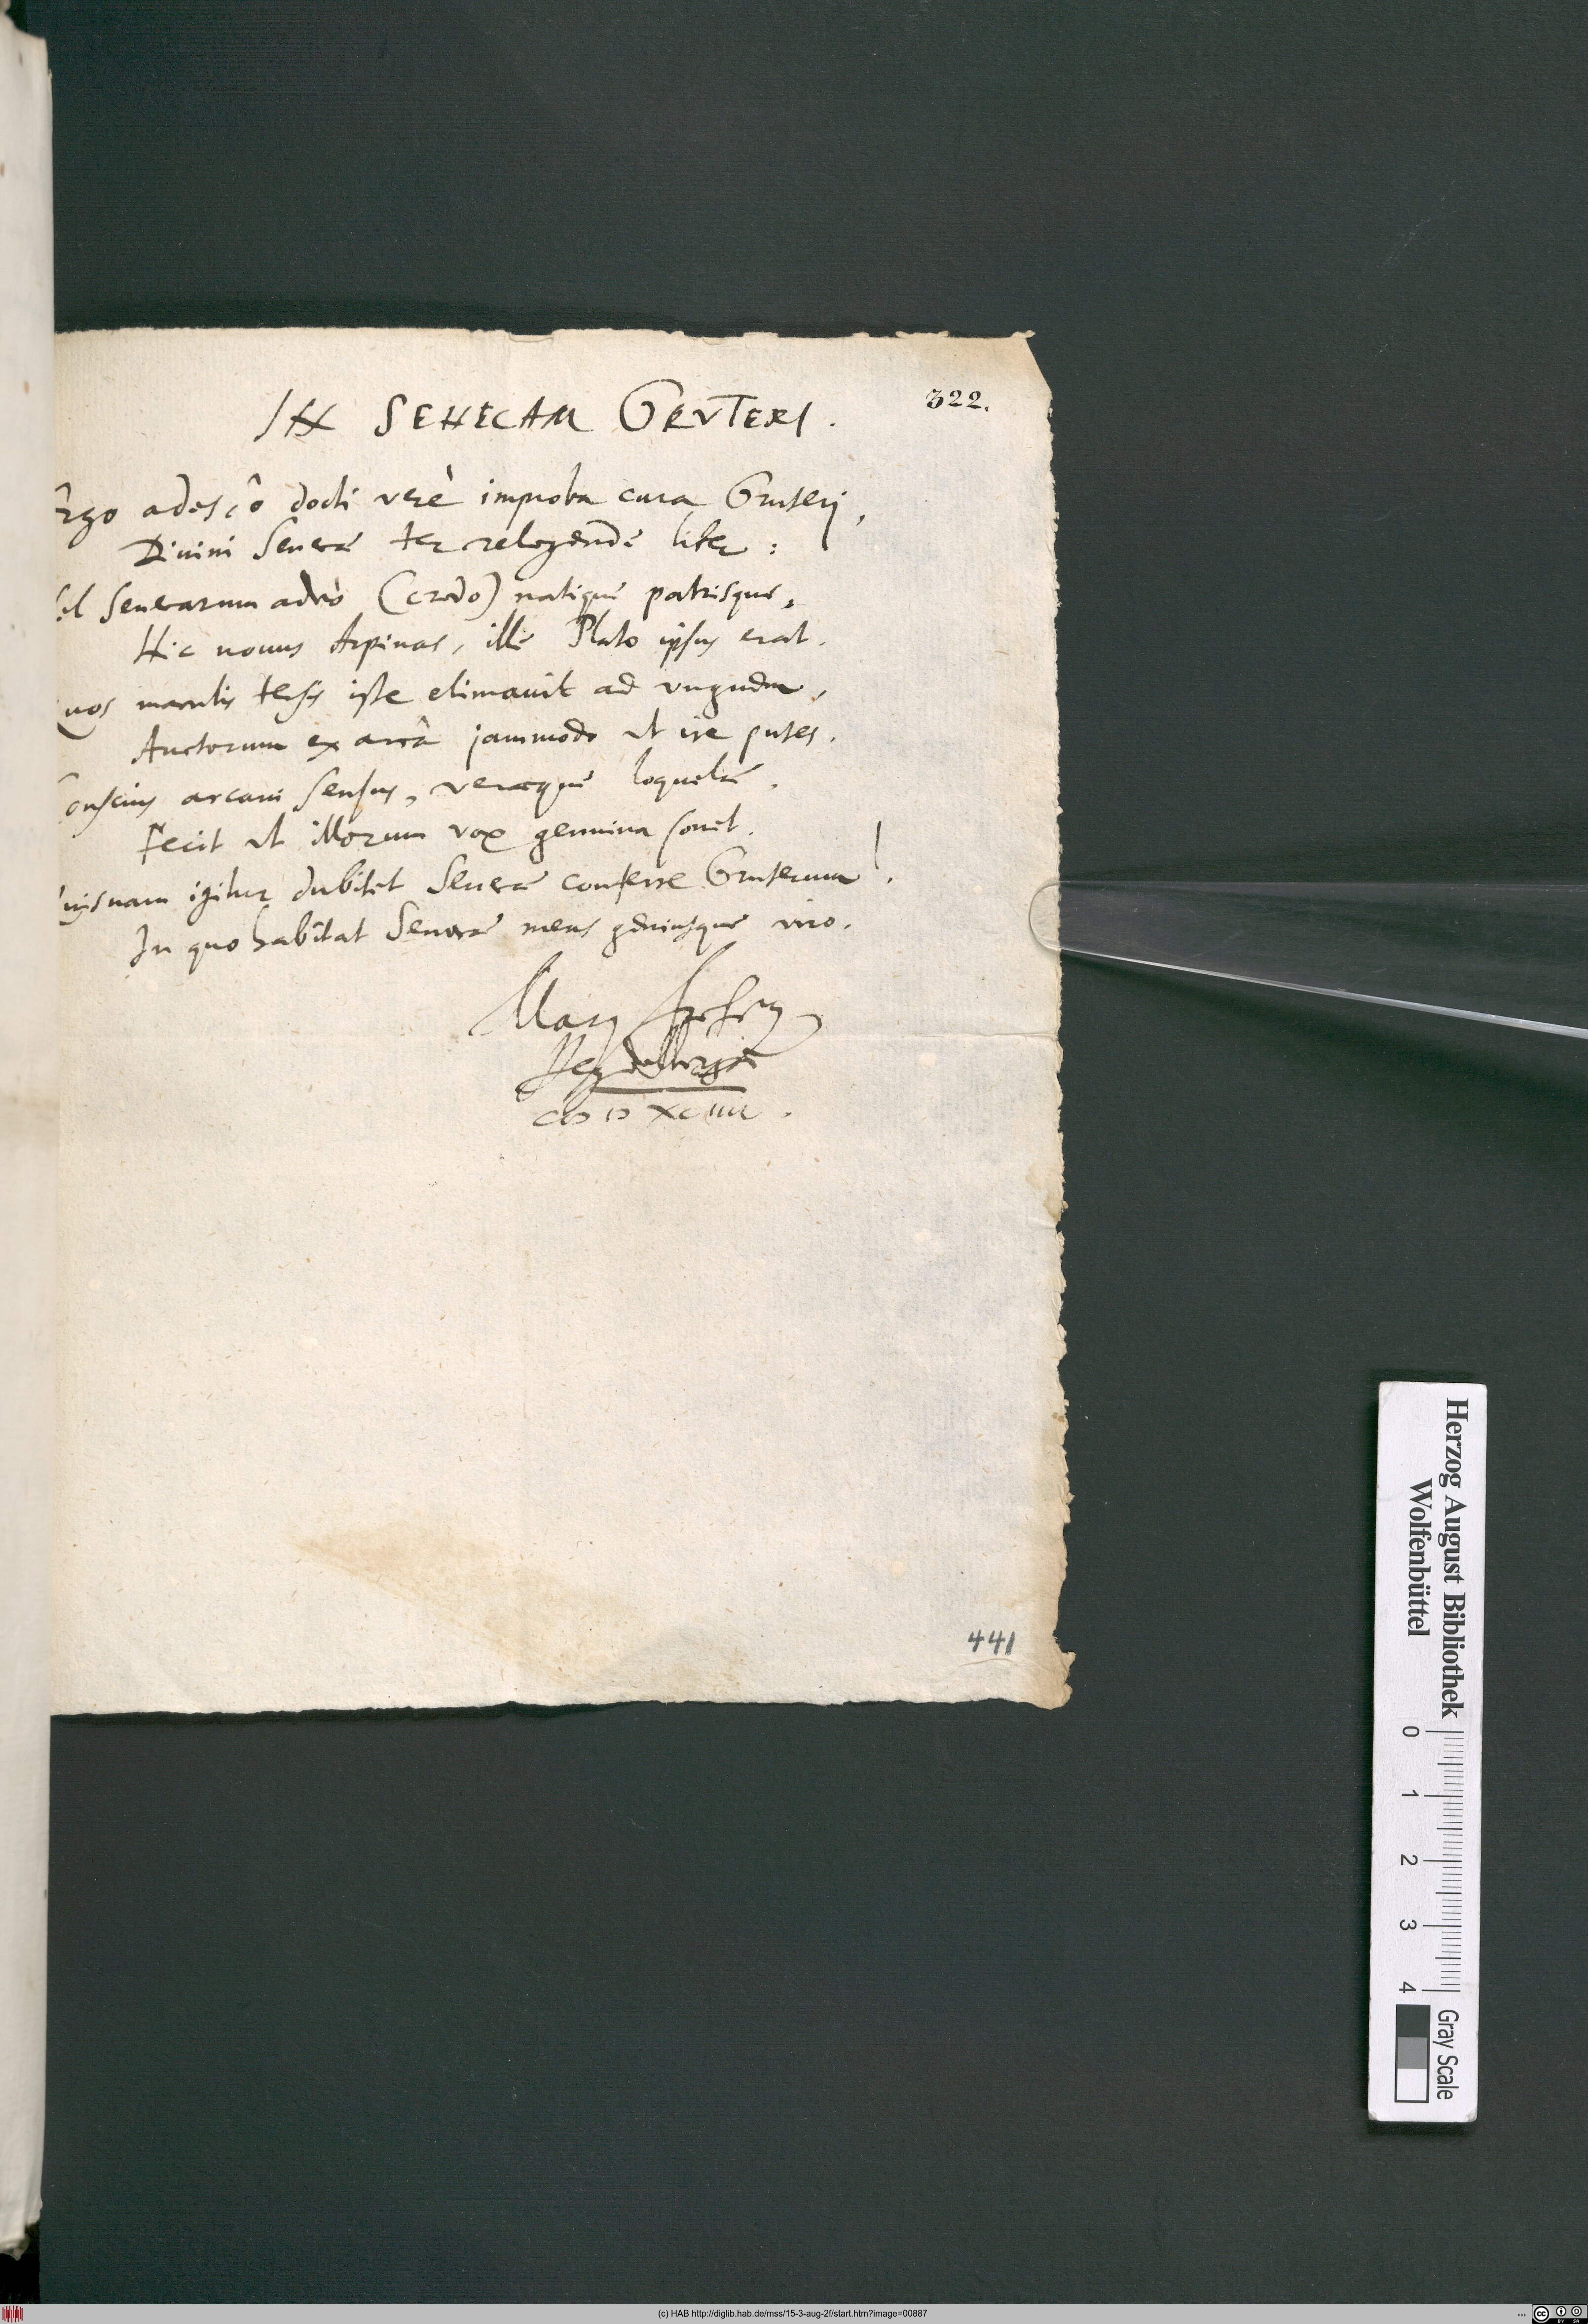 322.
IN SENECAM GRVTERI.
Ergo ades, ô docti verè improba cura Gruteri,
Divini Senecæ ter relegende liber:
Sil Senecarum adeò (credo) natique patrisque,
Hic nouus Arpinas, ille Plato ipsus erat.
Quos maculis tersis iste elimauit ad vnguem,
Auctorum ex arcâ jammodo vt ire putes.
Conscius arcani sensus, veræque loquelæ,
Fecit vt illorum vox genuina sonet.
Quisnam igitur dubitet Senecæ conferre Gruterum!
In quo habitat Senecæ mens geniusque viro.
Marq Freherq
Heydelbergæ
CIↃ IↃ XCIIII.
441
Herzog August Bibliothek
Wolfenbüttel
0 1 2 3 4
Gray Scale
(c) HAB http://diglib.hab.de/mss/15-3-aug-2f/start.htm?image=00887